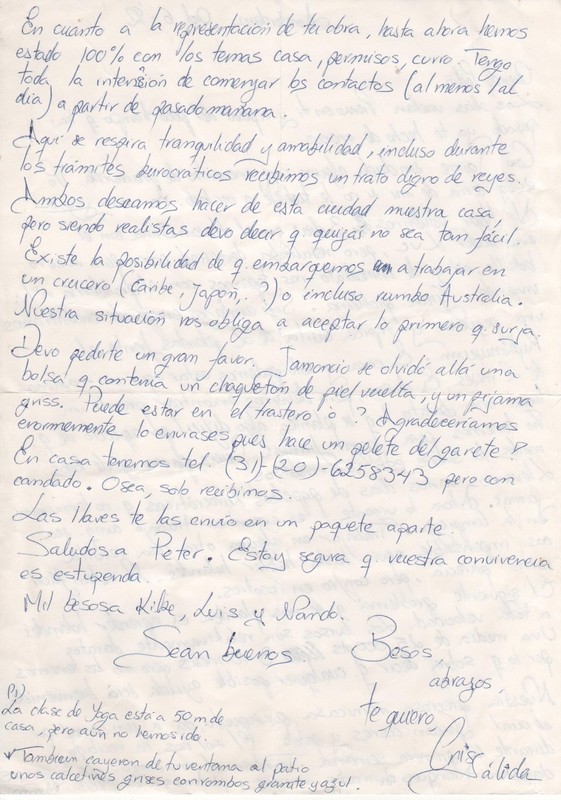 En cuanto a la representación de tu obra, hasta ahora hemos
estado 100% con los temas casa, permisos, curro. Tengo
toda la intensión de comenzar los contactos (al menos 1 al
día) a partir de pasado mañana.
Aquí se respira tranquilidad y amabilidad, incluso durante
los trámites burocráticos recibimos un trato digno de reyes.
Ambos deseamos hacer de esta ciudad nuestra casa,
pero siendo realistas devo decir q. quizás no sea tan fácil.
Existe la posibilidad de q. embarquemos a trabajar en
un crucero (Caribe, Japón, ?) o incluso rumbo Australia.
Nuestra situación nos obliga a aceptar lo primero q. surja.
Devo pedirte un gran favor. Jamoncio se olvidó allá una
bolsa q contenía un chaquetón de piel vuelta, y un pijama
griss. Puede estar en el trastero o ? Agradeceríamos
enormemente lo enviases pues hace un pelete del garete!
En casa tenemos tel. (31)-(20)-6258343 pero con
candado. Osea, solo recibimos.
Las llaves te las envío en un paquete aparte.
Saludos a Peter. Estoy segura q. vuestra convivencia
es estupenda.
Mil besos a Kike, Luis y Nando.
Sean buenos. Besos,
abrazos,
te quiero,
Cris
Cálida
P.D.
La clase de Yoga está a 50 m de
casa, pero aún no hemos ido.
También cayeron de tu ventana al patio
unos calcetines grises con rombos granate y azul.